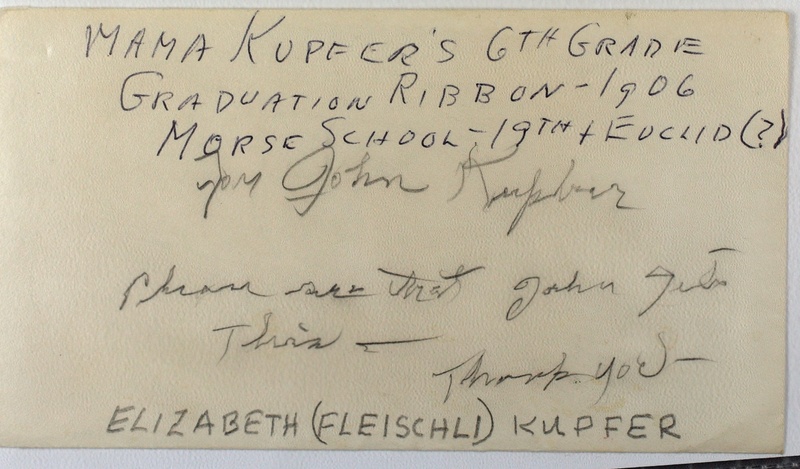 MAMA KUPFER'S 6TH GRADE
GRADUATION RIBBON - 1906
MORSE SCHOOL - 19TH & EUCLID (?)
For John Kupfer
Please see that John gets
This —
Thank you —
ELIZABETH (FLEISCHLI) KUPFER